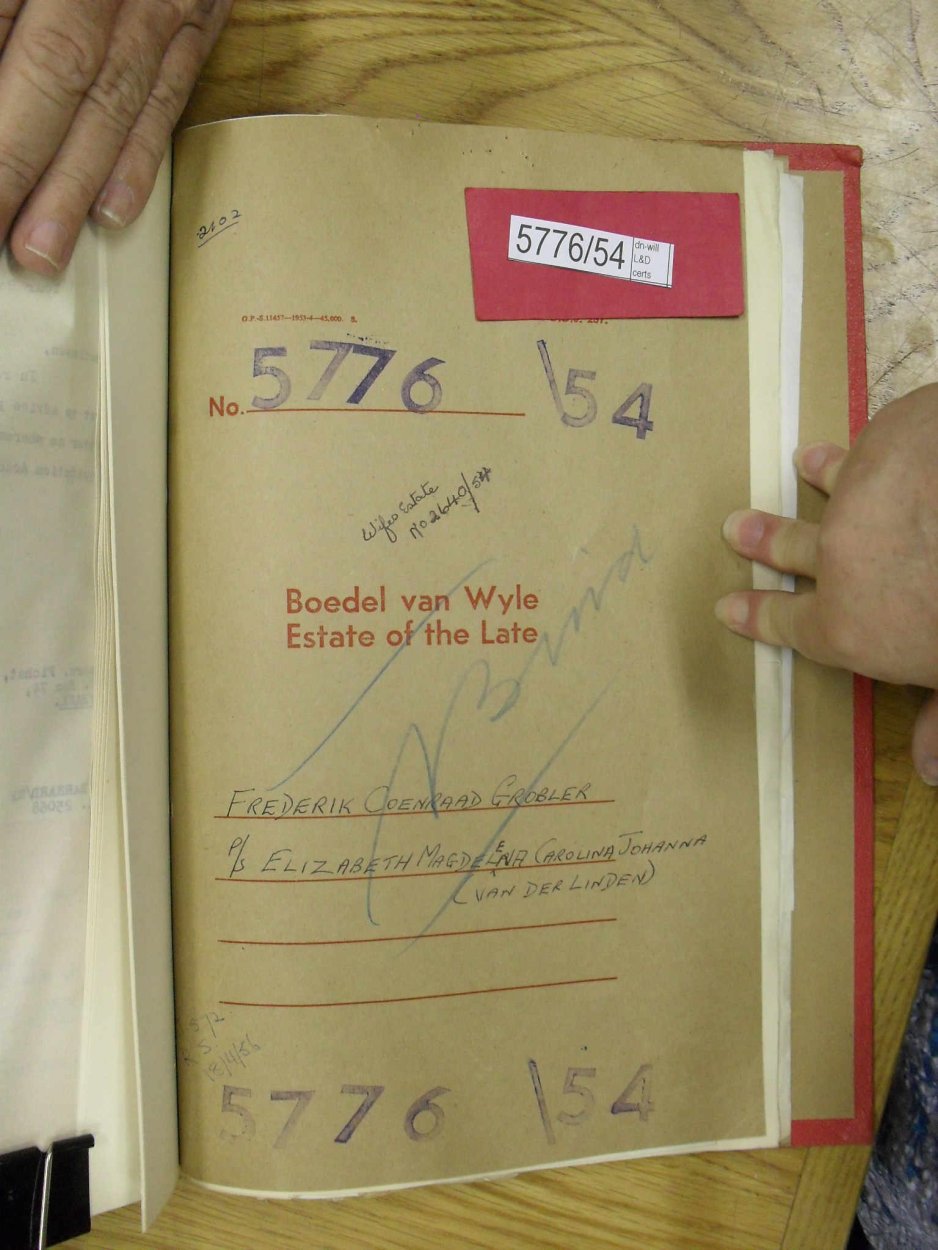 2102
5776/54
dn-will
L&D
certs
G.P.-S.11457—1953-4—45,000. S.
No. 5776 \54
Wifes Estate
No. 2640/54
Boedel van Wyle
Estate of the Late
FREDERIK COENRAAD GROBLER
P/S ELIZABETH MAGDELENA CAROLINA JOHANNA
(VAN DER LINDEN)
18/4/56
5776 \54